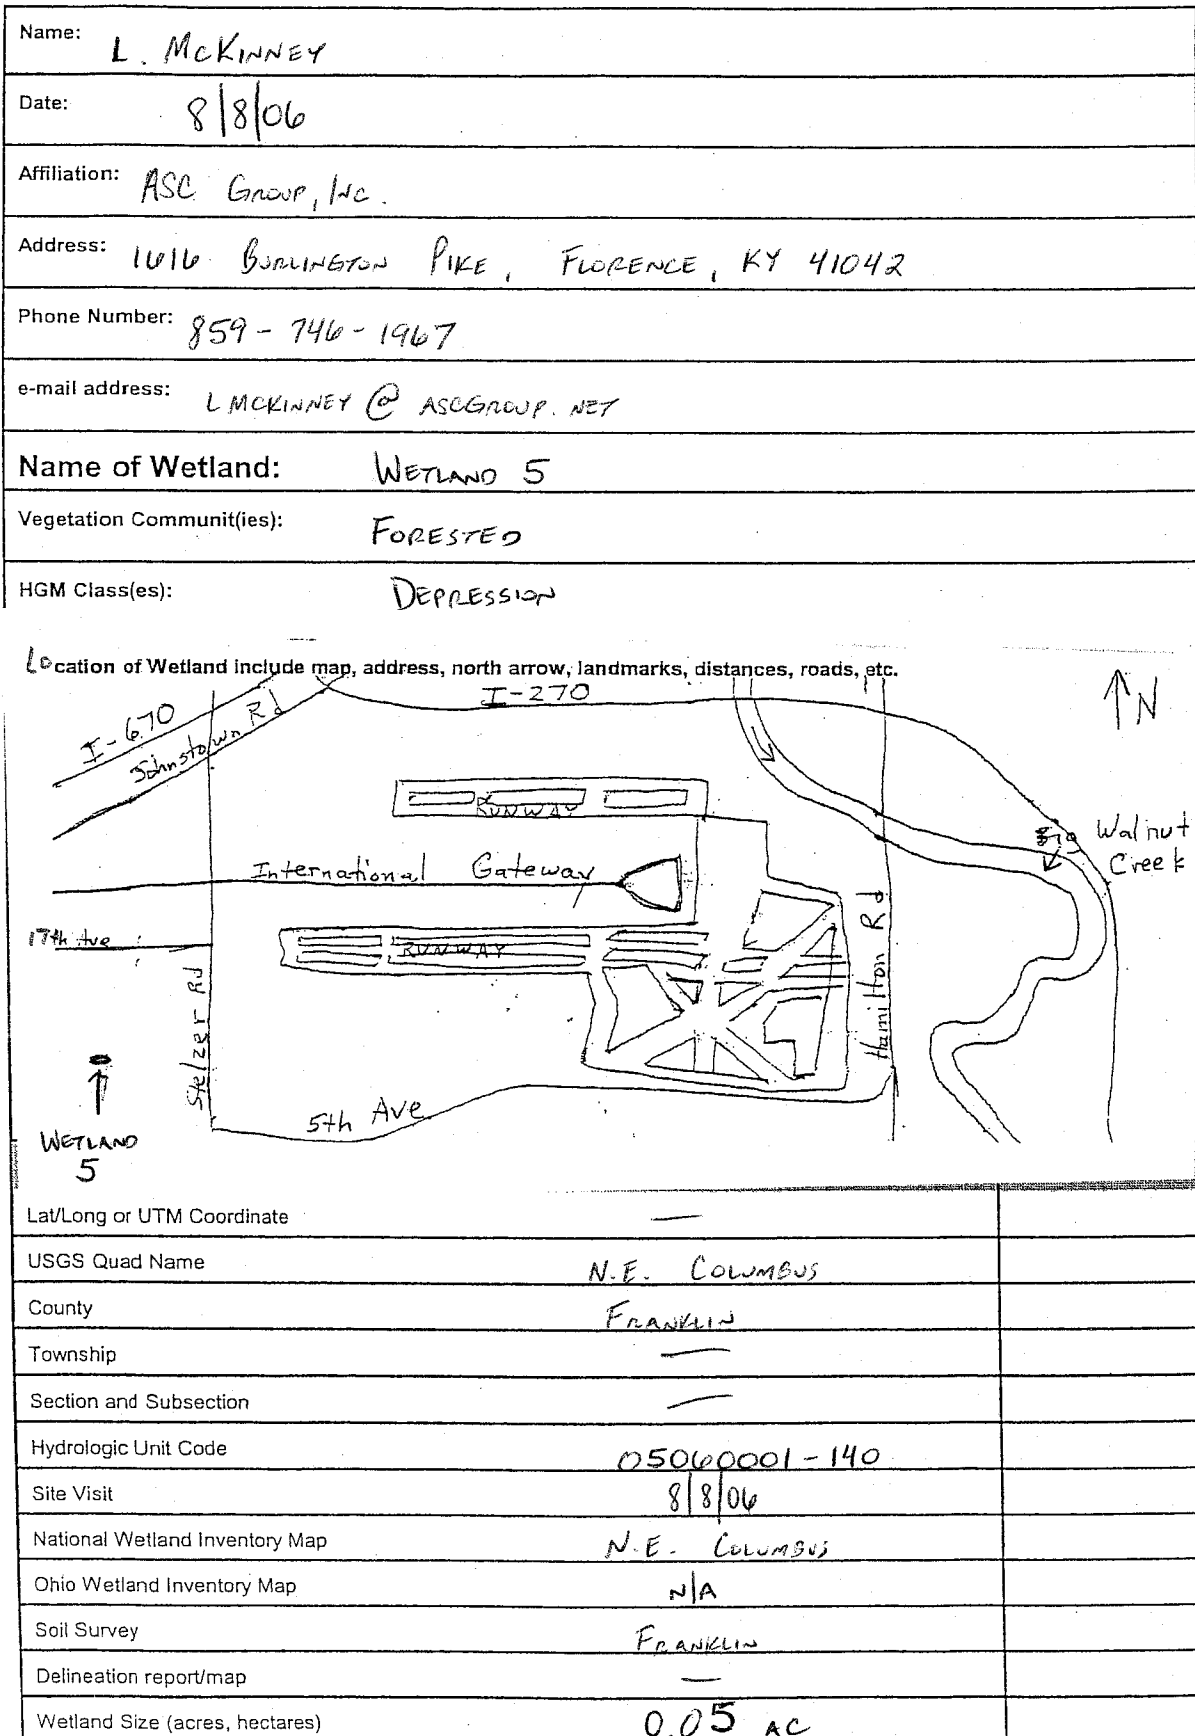 Name: L. McKinney
Date: 8/8/06
Affiliation: ASC Group, Inc.
Address: 1616 Burlington Pike, Florence, KY 41042
Phone Number: 859-746-1967
e-mail address: LMCKINNEY@ASCGROUP.NET
Name of Wetland: Wetland 5
Vegetation Communit(ies): Forested
HGM Class(es): Depression
Location of Wetland include map, address, north arrow, landmarks, distances, roads, etc.
I-270
N
I-670
Johnstown Rd
RUNWAY
Walnut
Creek
International Gateway
17th Ave
RUNWAY
Stelzer Rd
Hamilton Rd
5th Ave
Wetland
5
Lat/Long or UTM Coordinate —
USGS Quad Name N.E. Columbus
County Franklin
Township —
Section and Subsection —
Hydrologic Unit Code 05060001-140
Site Visit 8/8/06
National Wetland Inventory Map N.E. Columbus
Ohio Wetland Inventory Map N/A
Soil Survey Franklin
Delineation report/map —
Wetland Size (acres, hectares) 0.05 AC